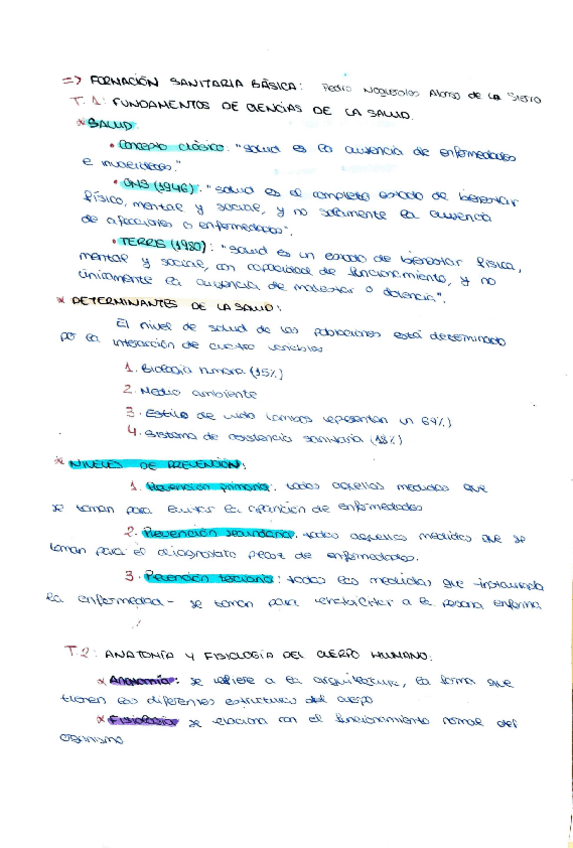 => FORMACIÓN SANITARIA BÁSICA: Pedro Nogueroles Alonso de la Sierra
T. 1: FUNDAMENTOS DE CIENCIAS DE LA SALUD.
* SALUD:
• Concepto clásico: "salud es la ausencia de enfermedades
e invalideces."
• OMS (1946): "salud es el completo estado de bienestar
físico, mental y social, y no solamente la ausencia
de afecciones o enfermedades".
• TERRIS (1980): "salud es un estado de bienestar física,
mental y social, con capacidad de funcionamiento, y no
únicamente la ausencia de malestar o dolencia".
* DETERMINANTES DE LA SALUD:
El nivel de salud de las poblaciones está determinado
por la interacción de cuatro variables
1. Biología humana (15%)
2. Medio ambiente
3. Estilo de vida (ambos representan un 67%)
4. Sistema de asistencia sanitaria (18%)
* NIVELES DE PREVENCIÓN:
1. Prevención primaria: todas aquellas medidas que
se toman para evitar la aparición de enfermedades
2. Prevención secundaria: todas aquellas medidas que se
toman para el diagnóstico precoz de enfermedades.
3. Prevención terciaria: todas las medidas, que -instaurada
la enfermedad- se toman para a la persona enferma
T.2: ANATOMÍA Y FISIOLOGÍA DEL CUERPO HUMANO:
* Anatomía: se refiere a la arquitectura, la forma que
tienen las diferentes estructuras del cuerpo
* Fisiología se relaciona con el funcionamiento normal del
organismo